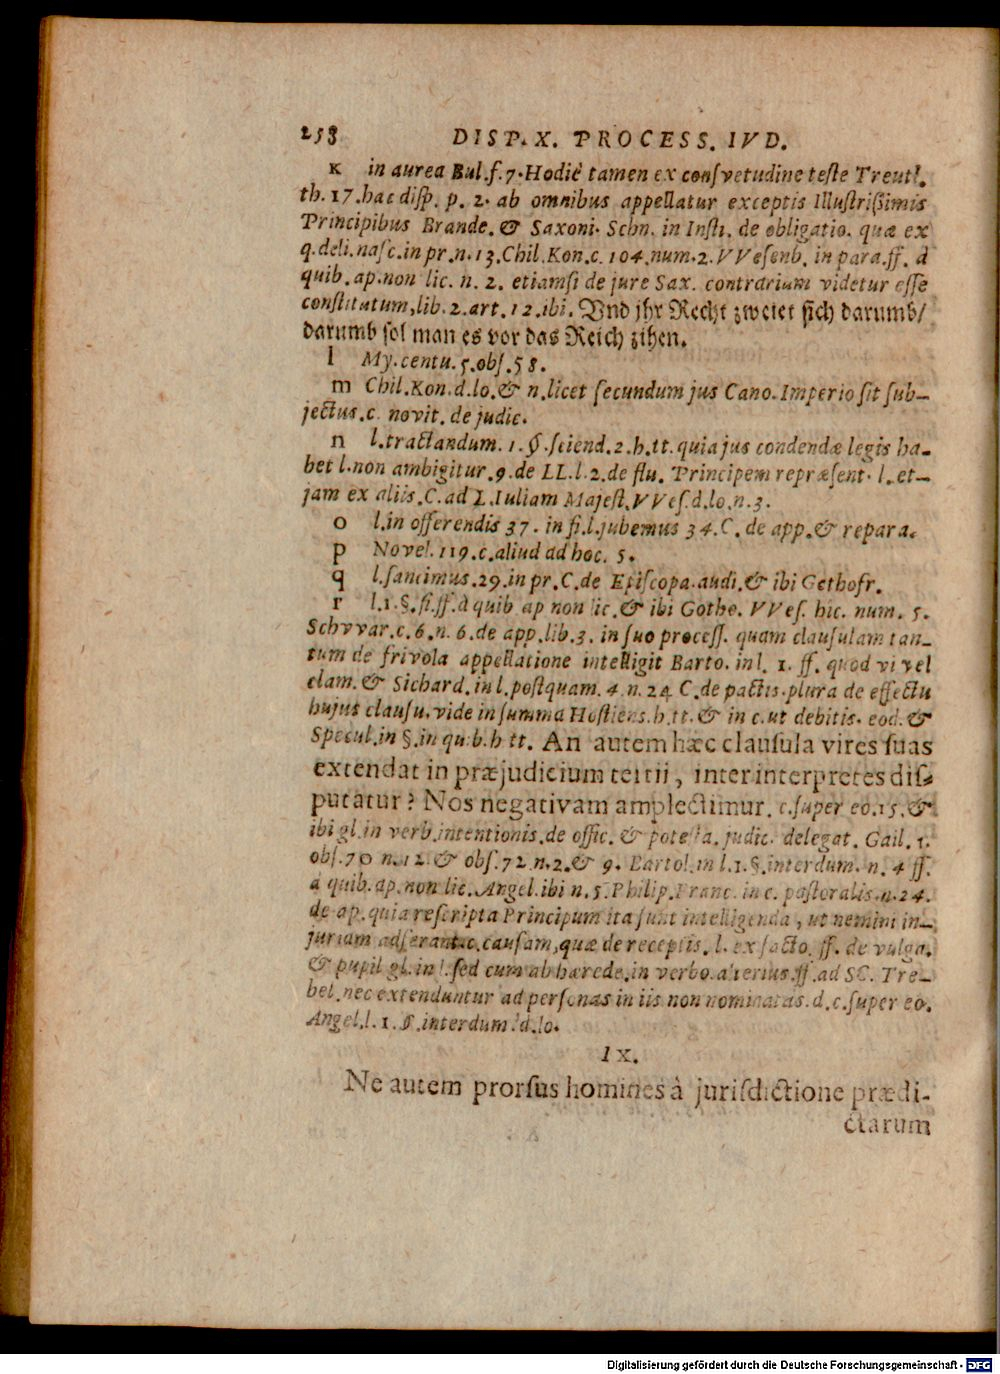 258 DISP. X. PROCESS. IVD.
K in aurea Bul. f. 7. Hodiè tamen ex consvetudine teste Treutl.
th. 17. hac disp. p. 2. ab omnibus appellatur exceptis Illustrißimis
Principibus Brande. & Saxoni. Schn. in Insti. de obligatio. quæ ex
q. deli. nasc. in pr. n. 13. Chil. Kon. c. 104. num. 2. VVesenb. in para. ff. â
quib. ap. non lic. n. 2. etiamsi de jure Sax. contrarium videtur esse
constitutum, lib. 2. art. 12. ibi. Vnd jhr Recht zweiet sich darumb/
darumb sol man es vor das Reich zihen.
l My. centu. 5. obs. 58.
m Chil. Kon. d. lo. & n. licet secundum jus Cano. Imperio sit sub-
jectus. c. novit. de judic.
n l. tractandum. 1. §. sciend. 2. h. tt. quia jus condendæ legis ha-
bet l. non ambigitur. 9. de LL. l. 2. de flu. Principem repræsent. l. et-
jam ex aliis. C. ad L. Iuliam Majest. VVes. d. lo. n. 3.
o l. in offerendis 37. in fi. l. jubemus 34. C. de app. & repara.
p Novel. 119. c. aliud ad hoc. 5.
q l. sancimus. 29. in pr. C. de Episcopa. audi. & ibi Gothofr.
r l. 1. §. si. ff. à quib ap non lic. & ibi Gothe. VVes. hic. num. 5.
Schvvar. c. 6. n. 6. de app. lib. 3. in suo process. quam clausulam tan-
tum de frivola appellatione intelligit Barto. in l. 1. ff. quod vi vel
clam. & Sichard. in l. postquam. 4. n. 24 C. de pactis. plura de effectu
hujus clausu. vide in summa Hostiens. h. tt. & in c. ut debitis. eod. &
Specul. in §. in quib. h tt. An autem hæc clausula vires suas
extendat in præjudicium tertii, inter interpretes dis-
putatur? Nos negativam amplectimur. c. super eo. 15. &
ibi gl. in verb. intentionis. de offic. & potesta. judic. delegat. Gail. 1.
obs. 70 n. 12. & obs. 72. n. 2. & 9. Bartol. in l. 1. §. interdum. n. 4 ff.
a quib. ap. non lic. Angel. ibi n. 5. Philip. Franc. in c. pastoralis. n. 24.
de ap. quia rescripta Principum ita sunt intelligenda, ut nemini in-
juriam adferant. c. causam, quæ de receptis. l. ex facto. ff. de vulga.
& pupil gl. in l. sed cum ab hærede. in verbo. alterius. ff. ad SC. Tre-
bel. nec extenduntur ad personas in iis non nominatas. d. c. super eo.
Angel. l. 1. §. interdum. d. lo.
IX.
Ne autem prorsus homines à jurisdictione prædi-
ctarum
Digitalisierung gefördert durch die Deutsche Forschungsgemeinschaft - DFG